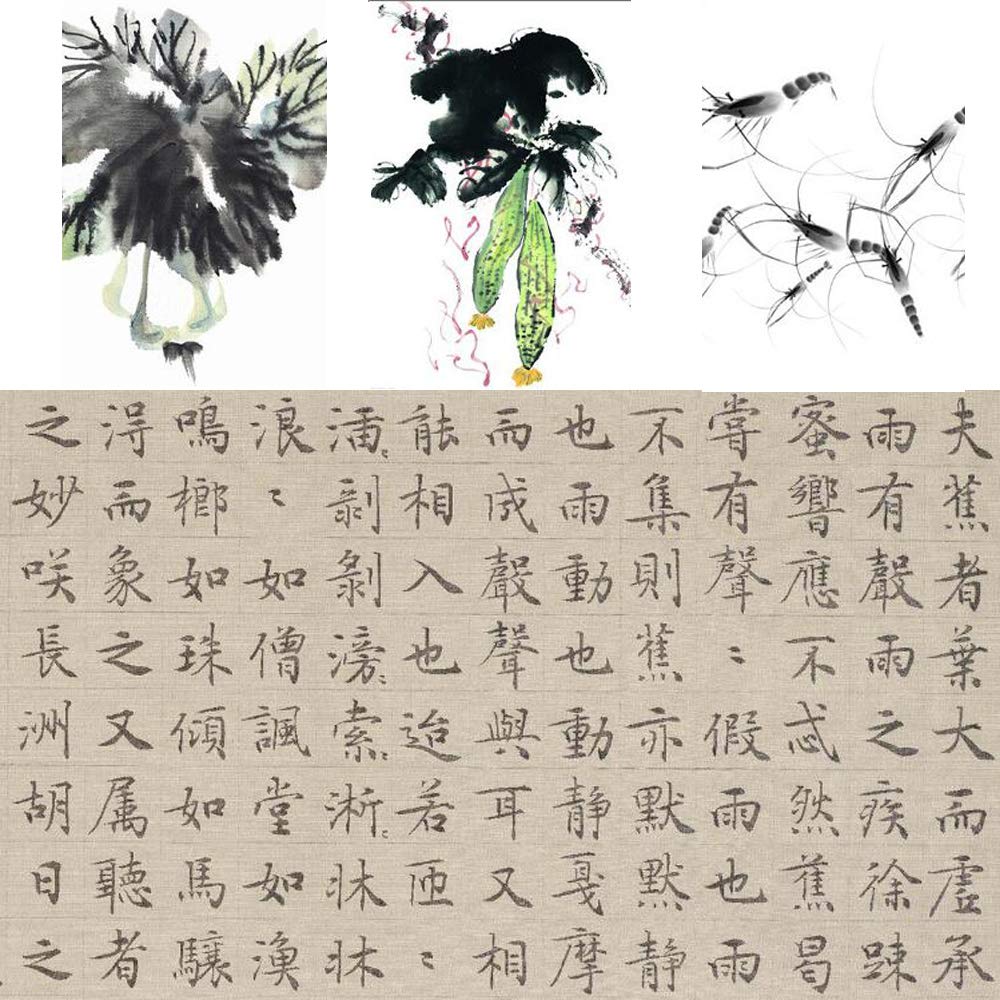 夫蕉者葉大而虗承
雨有聲雨之疾徐踈
蜜響應不忒然蕉曷
嘗有聲〻假雨也雨
不集則蕉亦默默静
也雨動也動静戛摩
而成聲聲與耳又相
能相入也迨若匝〻
剝剝滂〻索〻淅〻牀牀
浪〻如僧諷堂如漁
鳴榔如珠傾如馬驤
淂而象之又属聽者
之妙咲長洲胡日之